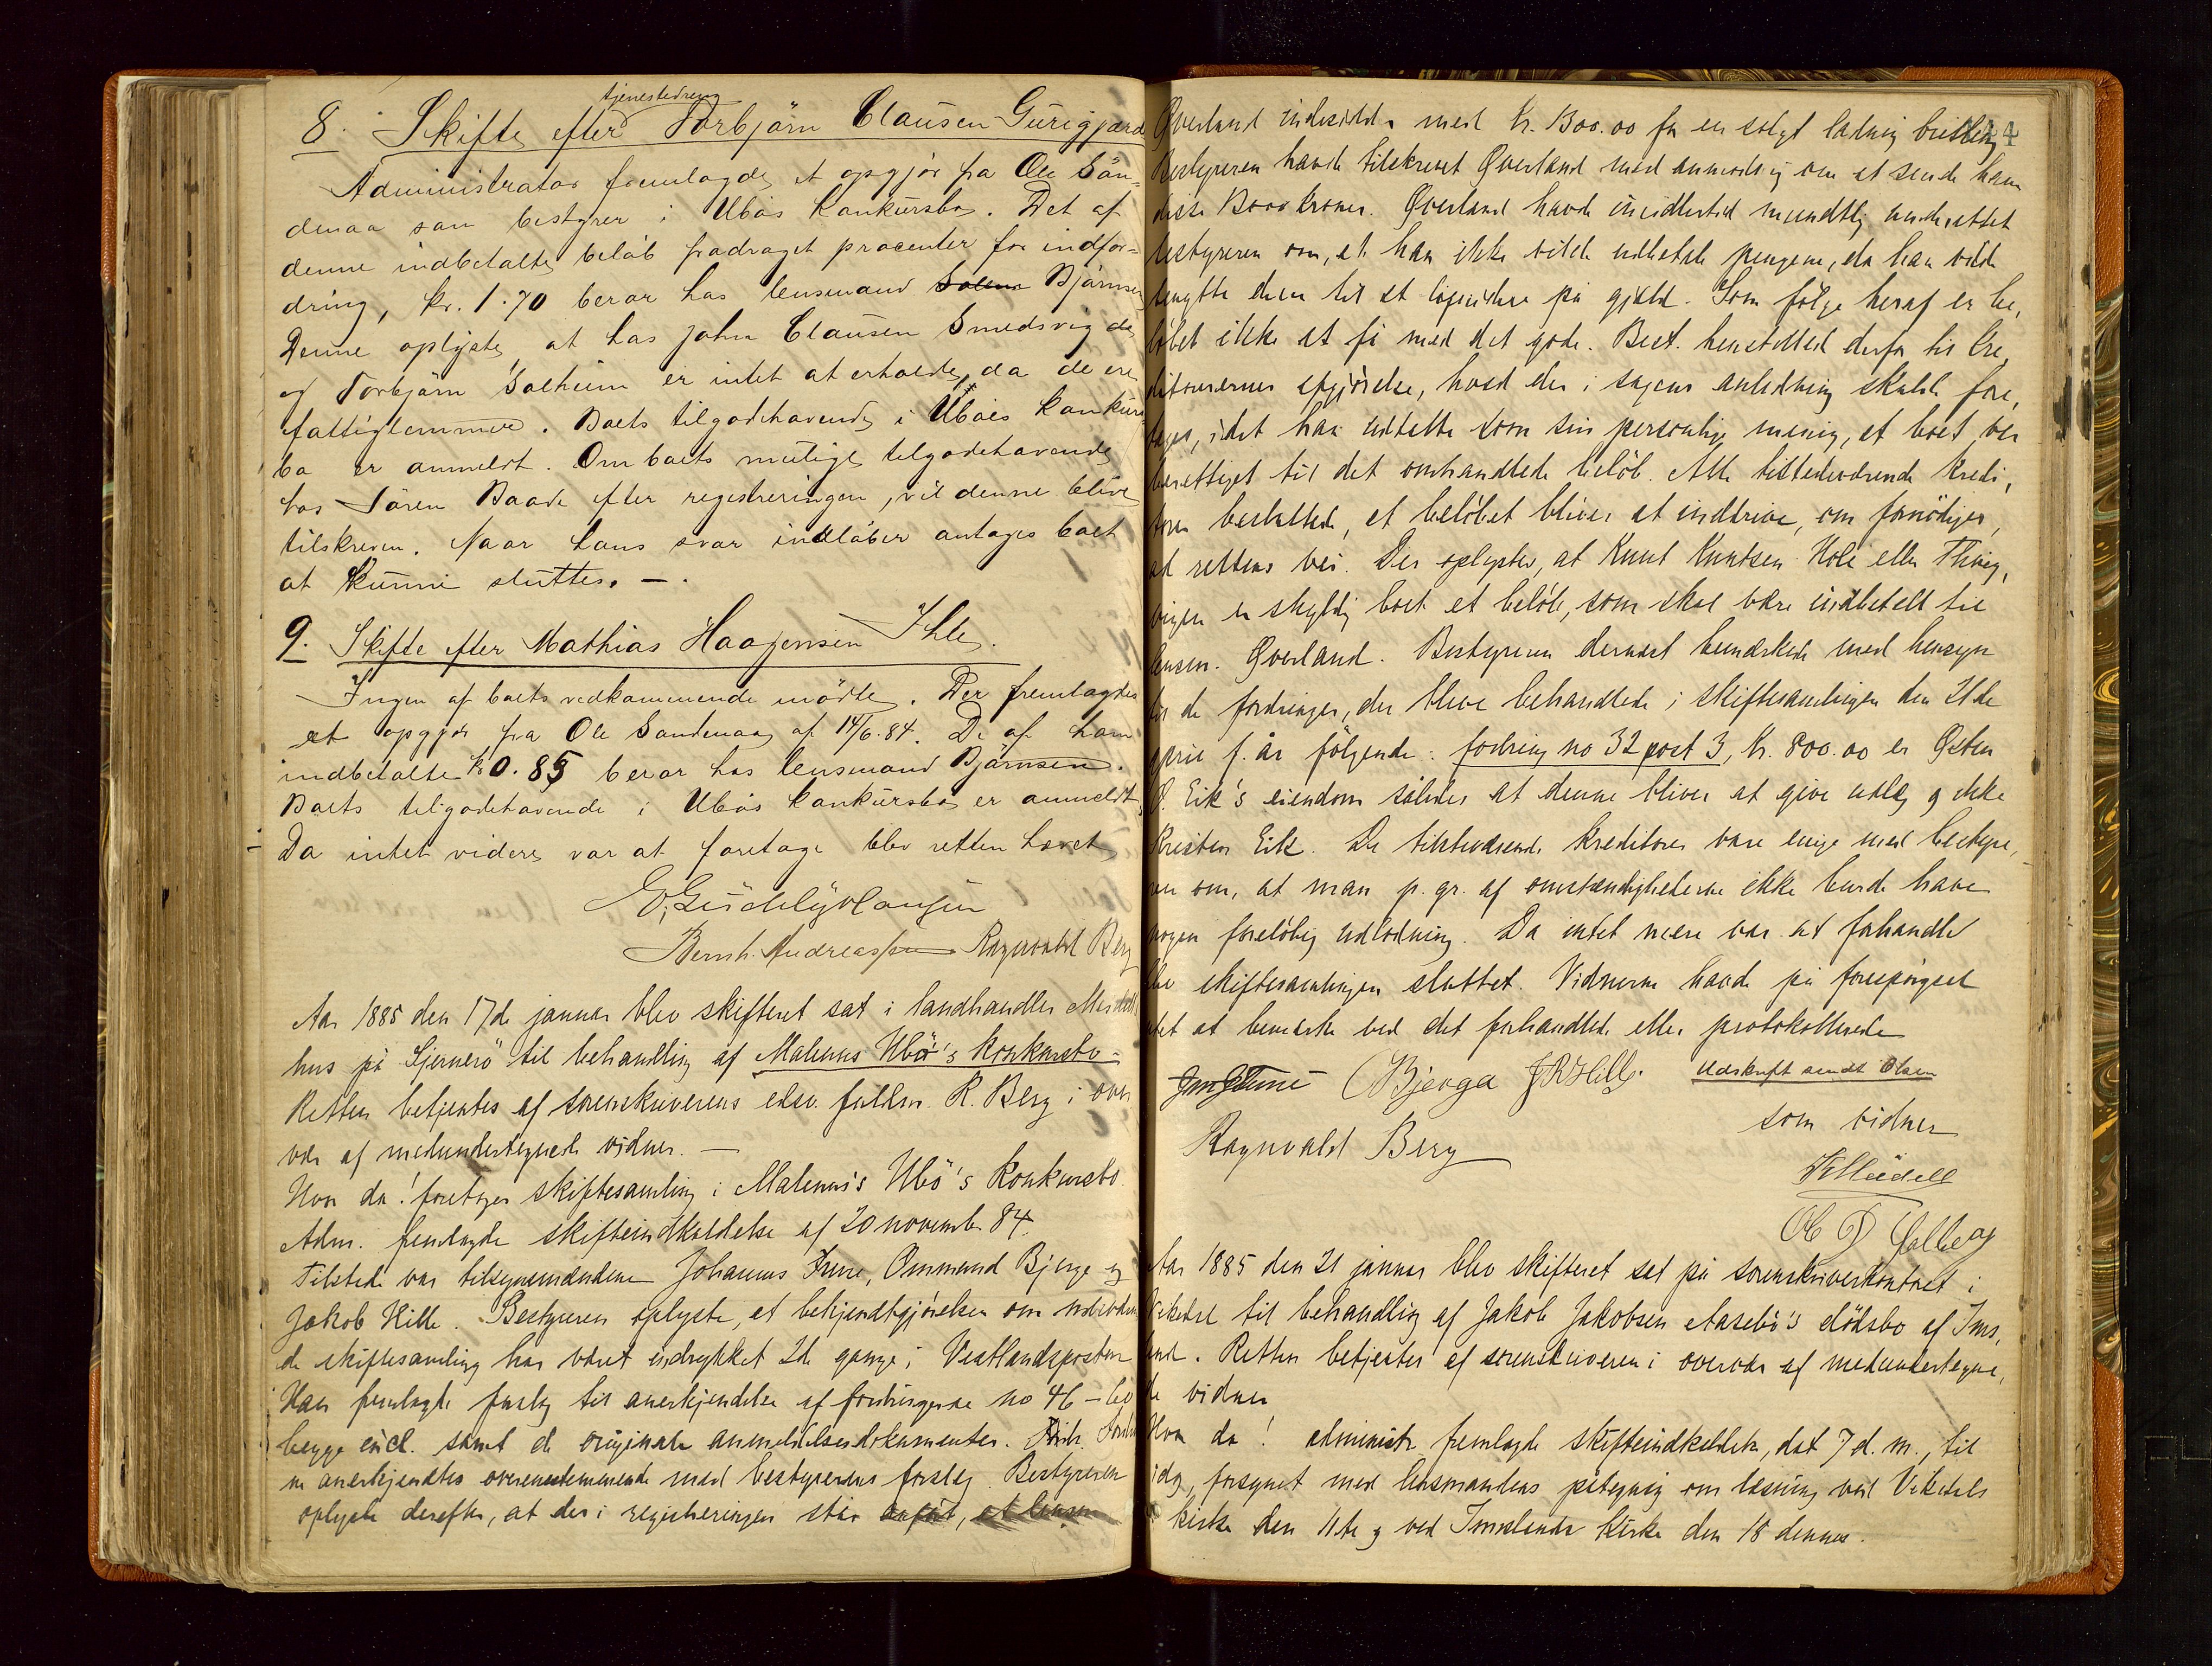 tjenestedreng
8. Skifte efter Torbjörn Clausen Gurigjærde
Administrator fremlagde et opgjör fra Ole San-
denaa som bestyrer i Ubös konkursbo. Det af
denne indbetalte belöb fradraget procenter for indfor-
dring, kr. 1.70 beror hos lensmand Bjørnsen
Denne oplyste, at hos John Clausen Smedsvig
og Torbjörn Solheim er intet at erholde, da de ere
fattiglemmer. Boets tilgodehavende i Uböes konkurs
bo er anmeldt. Om boets mulige tilgodehavende
hos Sören Baade efter registreringen, vil denne blive
tilskreven. Naar hans svar indlöber antages boet
at kunne sluttes. -
9. Skifte efter Mathias Haagensen Ihle.
Ingen af boets vedkommende mödte. Der fremlagdes
et opgjör fra Ole Sandenaa af 14/6.84. De af ham
indbetalte kr 0.85 beror hos lensmand Bjørnsen.
Boets tilgodehavende i Ubös konkursbo er anmeldt,
Da intet videre var at foretage blev retten hævet
Bernh. Andreassen Ragnvald Berg
Aar 1885 den 17de januar blev skifteret sat i landhandler
hus på Sjernerö til behandling af Malenus Ubö's konkursbo -
Retten betjentes af sorenskriverens edsv. fuldm. R. Berg i over
vær af medundertegnede vidner. —
Hvor da! foretoges skiftesamling i Malenus's Ubö's konkursbo.
Adm. fremlagde skifteindkaldelse af 20 novembr 84.
Tilstede var tilsynsmændene Johannes Tune, Ommund Bjerge og
Jakob Hille. Bestyreren oplyste, at bekjendtgjörelsen om
de skiftesamling har været indrykket 2de gange i Vestlandsposten
Han fremlagde forslag til anerkjendelse af fordringerne no 46 - 60
begge incl. samt de originale anmeldelsesdokumenter.
ne anerkjendtes overensstemmende med bestyrerens forslag. Bestyreren
oplyste derefter, at der i registreringen står anfört, at lensm
Qverland indesidder med kr. 1300.00 for en solgt ladning brisling
Bestyreren havde tilskrevet Qverland med anmodning om at sende ham
disse 1300 kroner. Qverland havde imidlertid mundtlig underrettet
bestyreren om, at han ikke vilde udbetale pengene, da han vilde
benytte dem til at liqvidere på gjæld. Som fölge heraf er be,
löbet ikke at få med det gode. Best. henstilled derfor til kre,
ditorernes afgjörelse, hvad der i sagens anledning skulde fore,
tages, idet han udtalte som sin personlige mening, at boet var
berettiget til det omhandlede belöb. Alle tilstedeværende kredi,
torer besluttede, at belöbet bliver at inddrive, om fornödiges,
ad rettens vei. Der oplystes, at Knut Knutsen Hole eller Thing,
vigen er skyldig boet et belöb, som skal være indbetalt til
lensm. Qverland. Bestyreren dernæst bemærkede med hensyn
til de fordringer, der bleve behandlede i skiftesamlingen den 21de
april f. år fölgende: fordring no 32 post 3, kr. 800.00 er Östen
O. Eik's eiendom således at denne bliver at give udlæg og ikke
Kristen Eik. De tilstedeværende kreditorer vare enige med bestyre,
ren om, at man p. gr. af omstændighederne ikke burde have
nogen foreløbig udlodning. Da intet mere var at forhandle
blev skiftesamlingen sluttet. Vidnerne havde på forespörgsel
intet at bemærke ved det forhandlede eller protokollerede
O Bjerga J R Hille. Udskrift sendt Olsen
som vidner
Ragnvald Berg
Aar 1885 den 21 januar blev skifteret sat på sorenskriverkontoret i
Vikedal til behandling af Jakob Jakobsen Aasebö's dödsbo af Ims,
land. Retten betjentes af sorenskriveren i overvær af medundertegne,
de vidner
Hvor da! administr. fremlagde skifteindkaldelse, dat 7 d. m., til
idag, forsynet med lensmandens påtegning om læsning ved Vikedals
kirke den 11te og ved Imslands kirke den 18 dennes.